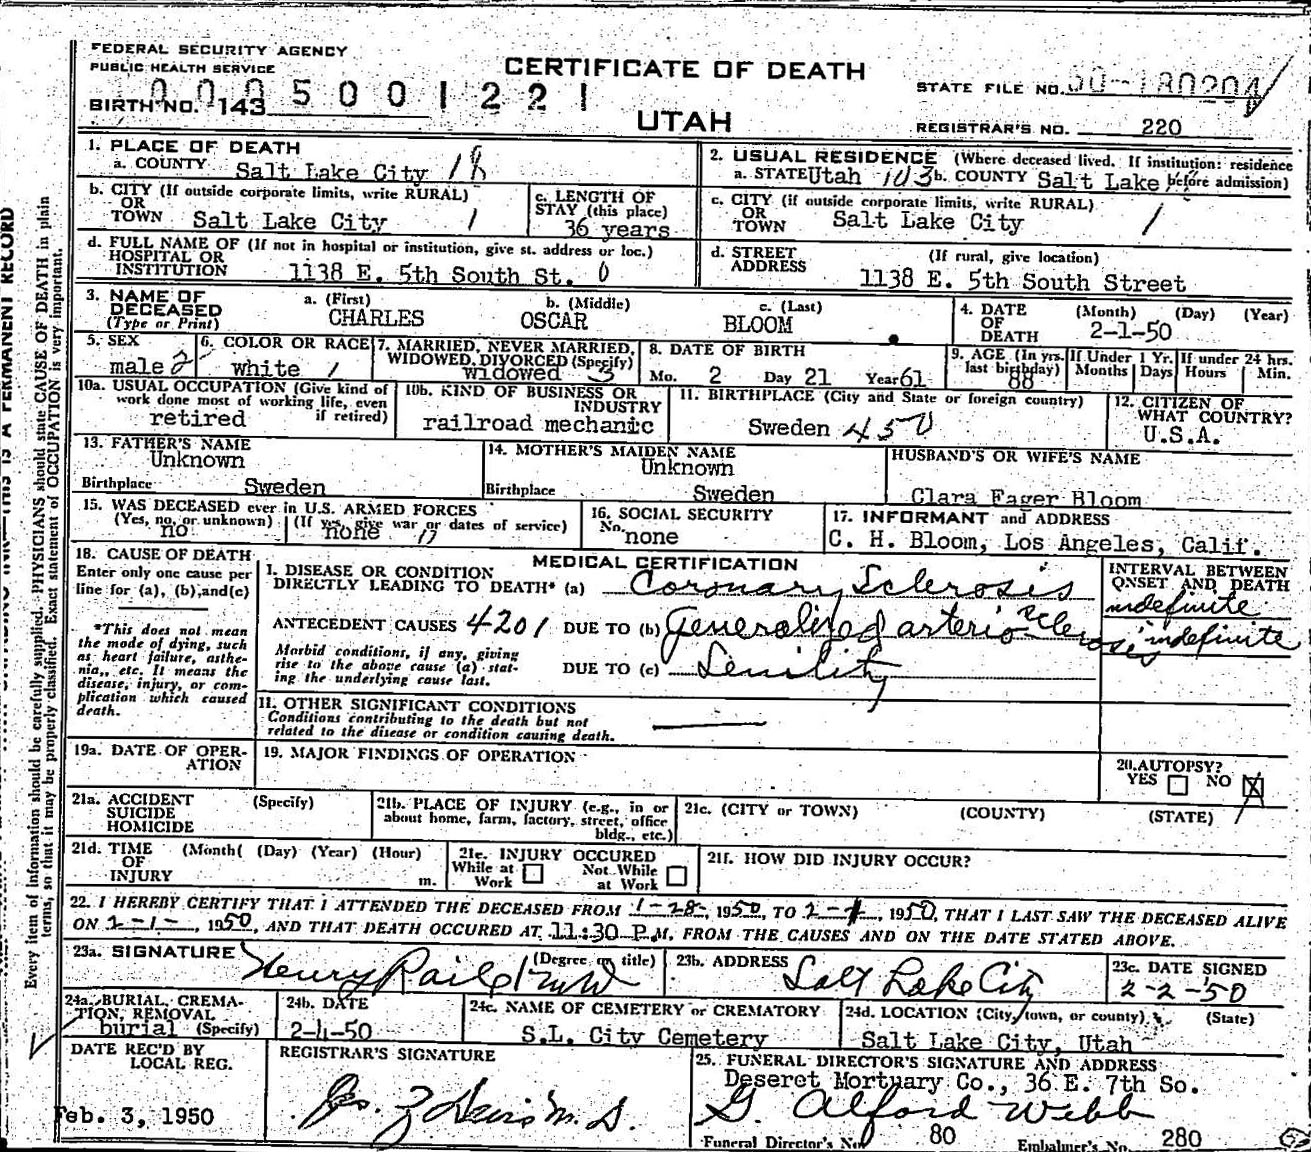 FEDERAL SECURITY AGENCY
PUBLIC HEALTH SERVICE
CERTIFICATE OF DEATH
UTAH
0005001221
BIRTH NO. 143
STATE FILE NO. 50-180204
REGISTRAR'S NO. 220
1. PLACE OF DEATH
a. COUNTY Salt Lake City 18
2. USUAL RESIDENCE (Where deceased lived. If institution: residence before admission)
a. STATE Utah 103 b. COUNTY Salt Lake
b. CITY (If outside corporate limits, write RURAL)
OR
TOWN Salt Lake City 1
c. LENGTH OF
STAY (this place)
36 years
c. CITY (if outside corporate limits, write RURAL)
OR
TOWN Salt Lake City 1
d. FULL NAME OF (If not in hospital or institution, give st. address or loc.)
HOSPITAL OR
INSTITUTION 1138 E. 5th South St. 0
d. STREET
ADDRESS
(If rural, give location)
1138 E. 5th South Street
3. NAME OF
DECEASED
(Type or Print)
a. (First) b. (Middle) c. (Last)
CHARLES OSCAR BLOOM
4. DATE
OF
DEATH
(Month) (Day) (Year)
2-1-50
5. SEX
male 2
6. COLOR OR RACE
white 1
7. MARRIED, NEVER MARRIED,
WIDOWED, DIVORCED (Specify)
widowed 3
8. DATE OF BIRTH
Mo. 2 Day 21 Year 61
9. AGE (In yrs.
last birthday)
88
If Under 1 Yr.
Months Days
If under 24 hrs.
Hours Min.
10a. USUAL OCCUPATION (Give kind of
work done most of working life, even
if retired)
retired
10b. KIND OF BUSINESS OR
INDUSTRY
railroad mechanic
11. BIRTHPLACE (City and State or foreign country)
Sweden 450
12. CITIZEN OF
WHAT COUNTRY?
U.S.A.
13. FATHER'S NAME
Unknown
Birthplace Sweden
14. MOTHER'S MAIDEN NAME
Unknown
Birthplace Sweden
HUSBAND'S OR WIFE'S NAME
Clara Fager Bloom
15. WAS DECEASED ever in U.S. ARMED FORCES
(Yes, no, or unknown) (If yes, give war or dates of service)
no none
16. SOCIAL SECURITY
No. none
17. INFORMANT and ADDRESS
C. H. Bloom, Los Angeles, Calif.
18. CAUSE OF DEATH
Enter only one cause per
line for (a), (b), and (c)
*This does not mean
the mode of dying, such
as heart failure, asthe-
nia, etc. It means the
disease, injury, or com-
plication which caused
death.
MEDICAL CERTIFICATION
I. DISEASE OR CONDITION
DIRECTLY LEADING TO DEATH* (a) Coronary Sclerosis
ANTECEDENT CAUSES 4201 DUE TO (b) Generalized arterio sclerosis
Morbid conditions, if any, giving
rise to the above cause (a) stat-
ing the underlying cause last.
DUE TO (c) Senility
INTERVAL BETWEEN
ONSET AND DEATH
indefinite
indefinite
II. OTHER SIGNIFICANT CONDITIONS
Conditions contributing to the death but not
related to the disease or condition causing death.
19a. DATE OF OPER-
ATION
19. MAJOR FINDINGS OF OPERATION
20. AUTOPSY?
YES NO X
21a. ACCIDENT (Specify)
SUICIDE
HOMICIDE
21b. PLACE OF INJURY (e.g., in or
about home, farm, factory, street, office
bldg., etc.)
21c. (CITY or TOWN) (COUNTY) (STATE)
21d. TIME (Month( (Day) (Year) (Hour)
OF
INJURY m.
21e. INJURY OCCURED
While at Work Not While at Work
21f. HOW DID INJURY OCCUR?
22. I HEREBY CERTIFY THAT I ATTENDED THE DECEASED FROM 1-28-, 1950, TO 2-1, 1950, THAT I LAST SAW THE DECEASED ALIVE
ON 2-1-, 1950, AND THAT DEATH OCCURED AT 11:30 P.M. FROM THE CAUSES AND ON THE DATE STATED ABOVE.
23a. SIGNATURE (Degree or title)
Henry
23b. ADDRESS
Salt Lake City
23c. DATE SIGNED
2-2-50
24a. BURIAL, CREMA-
TION, REMOVAL
burial (Specify)
24b. DATE
2-4-50
24c. NAME OF CEMETERY or CREMATORY
S.L. City Cemetery
24d. LOCATION (City, town, or county) (State)
Salt Lake City, Utah
DATE REC'D BY
LOCAL REG.
Feb. 3, 1950
REGISTRAR'S SIGNATURE
M.D.
25. FUNERAL DIRECTOR'S SIGNATURE AND ADDRESS
Deseret Mortuary Co., 36 E. 7th So.
G. Alford Webb
Funeral Director's No. 80 Embalmer's No. 280
Every item of information should be carefully supplied. PHYSICIANS should state CAUSE OF DEATH in plain
terms, so that it may be properly classified. Exact statement of OCCUPATION is very important.
THIS IS A PERMANENT RECORD